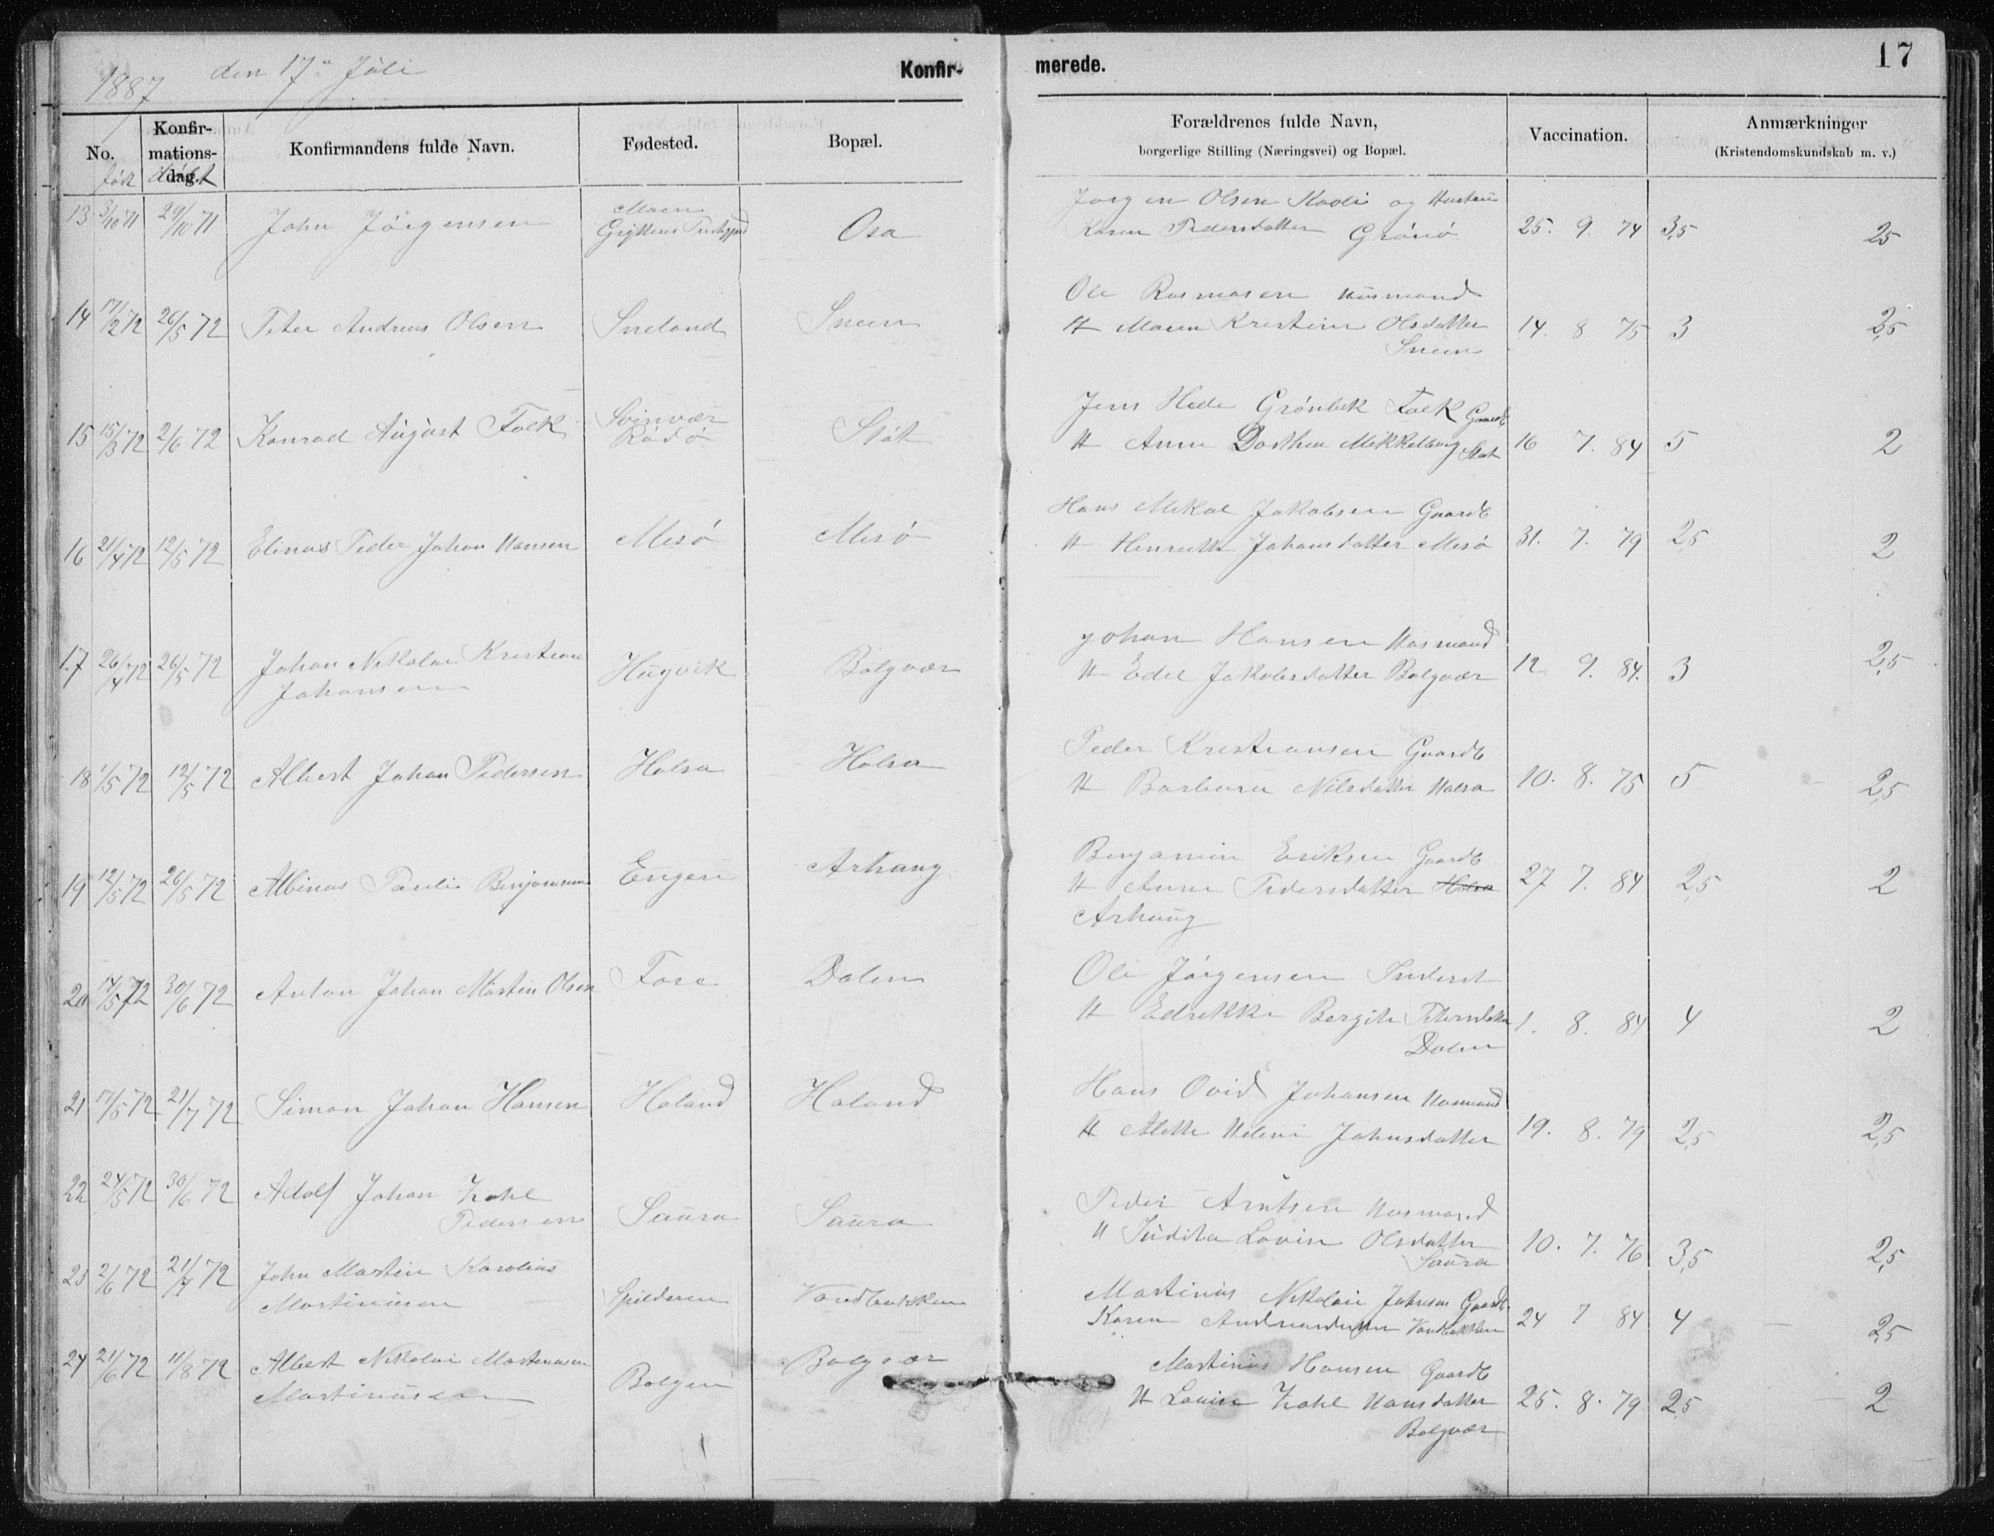 1887 den 17de Júli
Konfir-
merede.
17
No.
Konfir-
mations-
dag.
Konfirmandens fulde Navn.
Fødested.
Bopæl.
Forældrenes fulde Navn,
borgerlige Stilling (Næringsvei) og Bopæl.
Vaccination.
Anmærkninger
(Kristendomskundskab m. v.)
født døbt
13 3/10 71 29/10 71 John Jörgensen Osa
Jørgen Olsen og Hustru
Karen Pedersdatter Grönö 25. 9. 74 3,5 2,5
14 17/2 72 26/5 72 Peter Andreas Olsen Sneland Sneen
Ole Rasmusen Husmand
H Maren Kristine Olsdatter 14. 8 75 3 2,5
Sneen
15 15/3 72 2/6 72 Konrad August Falk Svinvær
Rödö Stöt
Jens Hede Grönbek Falk Gaardb
H Anne Dorthea Mikkelborg Stöt 16 7. 84 5 2
16 21/4 72 12/5 72 Elinus Peder Johan Hansen Mesö Mesö
Hans Mikal Jakobsen Gaardb
H Henrette Johansdatter Mesö 31. 7. 79 2,5 2
17 26/4 72 26/5 72 Johan Nikolai Kristian
Johansen Hugvik Bolgvær
Johan Hansen Husmand
H Edel Jakobsdatter Bolgvær 12. 9. 84. 3 2,5
18 1/5 72 12/5 72 Albert Johan Pedersen Halsa Halsa
Peder Kristiansen Gaardb
H Barbara Nilsdatter Halsa 10. 8. 75 5 2,5
19 12/5 72 26/5 72 Albinus Paulin Benjamsen Engen Arhaug
Benjamin Eriksen Gaardb
H Anne Pedersdatter Halsa 27 7. 84 2,5 2
Arhaug
20 17/5 72 30/6 72 Anton Johan Martin Olsen Fore Dalen
Ole Jörgensen Inderst
H Edrikke Bergite Petersdatter 1. 8. 84 4 2
Dalen
21 17/5 72 21/7 72 Simon Johan Hansen Haland Haland
Hans Ovid Johansen Husmand
H Alette Helene Johnsdatter 19. 8. 79 2,5 2,5
22 24/5 72 30/6 72 Adolf Johan Zahl
Pedersen Saura Saura
Peder Arntsen Husmand
H Judita Lovise Olsdatter 10. 7. 76 3,5 2,5
Saura
23 2/6 72 21/7 72 John Martin Karolius
Martinusen Spilderen Vandbakken
Martinus Nikolai Johnsen Gaardb.
Karen Vandbakken 24 7 84 4 2,5
24 21/6 72 11/8 72 Albert Nikolai Mortenusen
Martinussen Bolgen Bolgvær
Martinus Hansen Gaardb
H Lovise Zahl Hansdatter 25. 8. 79 2,5 2
Bolgvær